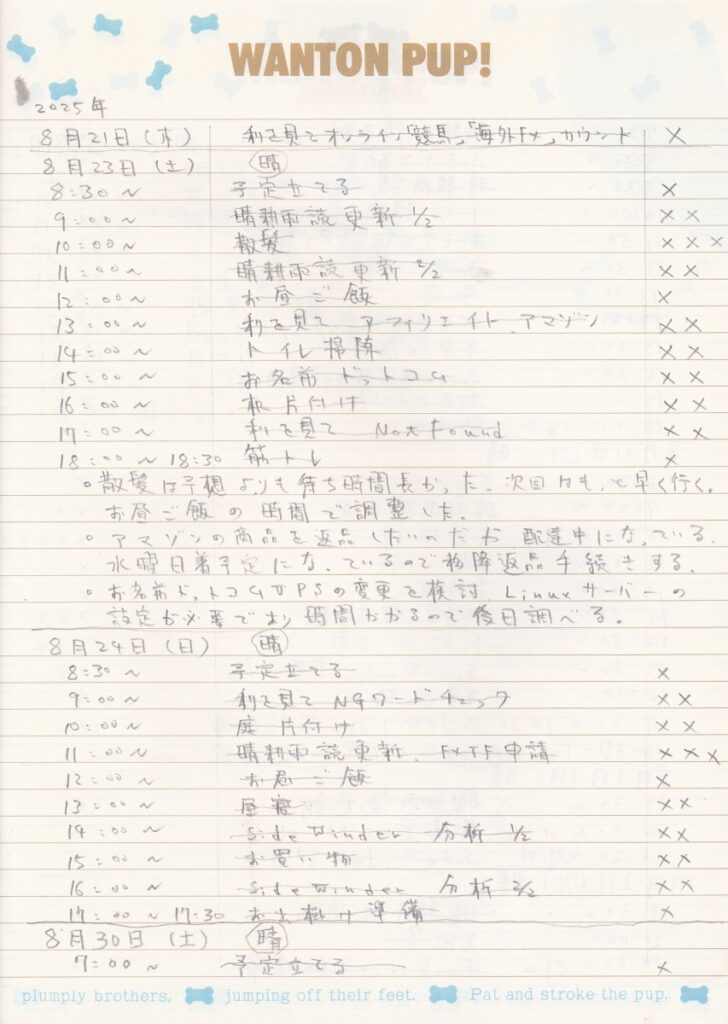 WANTON PUP!
2025年
8月21日(木) 利を見てオンライン「競馬」「海外FX」カウント ×
8月23日(土) 晴
8:30~ 予定立てる ×
9:00~ 晴耕雨読更新 1/2 ××
10:00~ 散髪 ×××
11:00~ 晴耕雨読更新 2/2 ××
12:00~ お昼ご飯 ×
13:00~ 利を見て、アフィリエイト、アマゾン ××
14:00~ トイレ掃除 ××
15:00~ お名前ドットコム ××
16:00~ 机片付け ××
17:00~ 利を見て Not Found ××
18:00~18:30 筋トレ ×
。散髪は予想よりも待ち時間長かった。次回はもっと早く行く。
お昼ご飯の時間で調整した。
。アマゾンの商品を返品したいのだが配達中になっている。
水曜日着予定になっているので移降返品手続きする。
。お名前ドットコムVPSの変更を検討。Linuxサーバーの
設定が必要であり時間かかるので後日調べる。
8月24日(日) 晴
8:30~ 予定立てる ×
9:00~ 利を見てNGワードチェック ××
10:00~ 庭片付け ××
11:00~ 晴耕雨読更新、FXTF申請 ×××
12:00~ お昼ご飯 ×
13:00~ 昼寝 ××
14:00~ Side Winder 分析 1/2 ××
15:00~ お買い物 ××
16:00~ Side Winder 分析 2/2 ××
17:00~17:30 お出掛け準備 ×
8月30日(土) 晴
7:00~ 予定立てる ×
plumply brothers. jumping off their feet. Pat and stroke the pup.